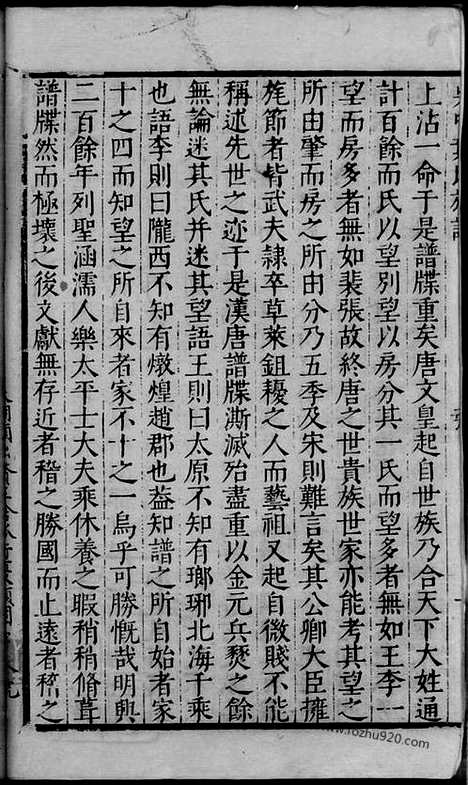 上沾一命于是譜牒重矣唐文皇起自世族乃合天下大姓通
計百餘而氏以望別望以房分其一氏而望多者無如王李一
望而房多者無如裴張故終唐之世貴族世家亦能考其望之
所由肇而房之所由分乃五季及宋則難言矣其公卿大臣擁
旄節者皆武夫隷卒草萊鉏耰之人而藝祖又起自微賤不能
稱述先世之迹于是漢唐譜牒澌滅殆盡重以金元兵燹之餘
無論迷其氏并迷其望語王則曰太原不知有瑯琊北海千乘
也語李則曰隴西不知有燉煌趙郡也葢知譜之所自始者家
十之四而知望之所自來者家不十之一烏乎可勝慨哉明興
二百餘年列聖涵濡人樂太平士大夫乘休養之暇稍稍脩葺
譜牒然而極壞之後文獻無存近者稽之勝國而止遠者稽之
www.rozhu920.com